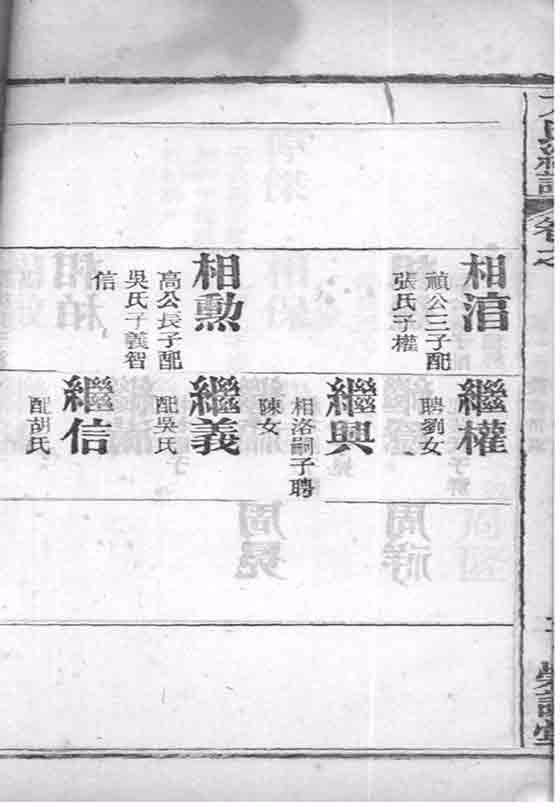 相
禎公三子配
張氏子權
相勳
高公長子配
吳氏子義智
信
繼權
聘劉女
繼興
相洛嗣子聘
陳女
繼義
配吳氏
繼信
配胡氏